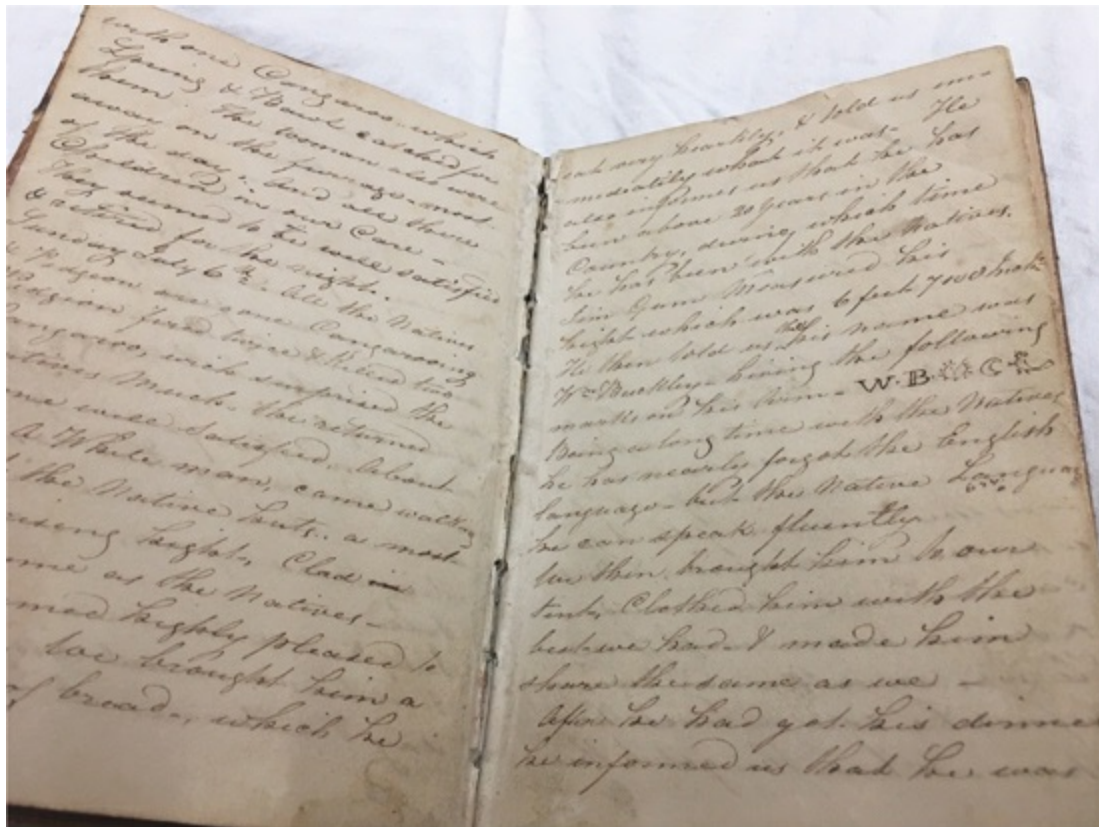 with one Cangaroo, which
Spring & Bawl catched for
them. The woman also were
away on the forrage most
of the day, and all their
Children in our Care -
They seemed to be well satisfied
& retired for the night.
Sunday July 6th. All the Natives
& Pidgeon are gone Cangarooing
Pidgeon fired twice & killed two
Cangaroo, wich surprised the
Natives Much. the returned
well satisfied. About
A White man, came walking
the Native huts, a most
surprising hight, Clad in
same as the Natives -
seemed highly pleased to
We brought him a
of bread, which he
eat very heartily, & told us im-
mediatily what it was. He
also informes us that he has
been above 20 Years in the
Country, during which time
he has been with the Natives.
Jim Gumm Measured his
hight which was 6 feet 7
He then told us that his name was
Wm Buckley - having the following
marks on his Arm - W.B.
Being a long time with the Natives
he has nearly forgot the English
language - but the Native Language
he can speak fluently.
We then brought him to our
tent, Clothed him with the
best we had - & made him
share the same as we -
After he had got his dinner
he informed us that he was